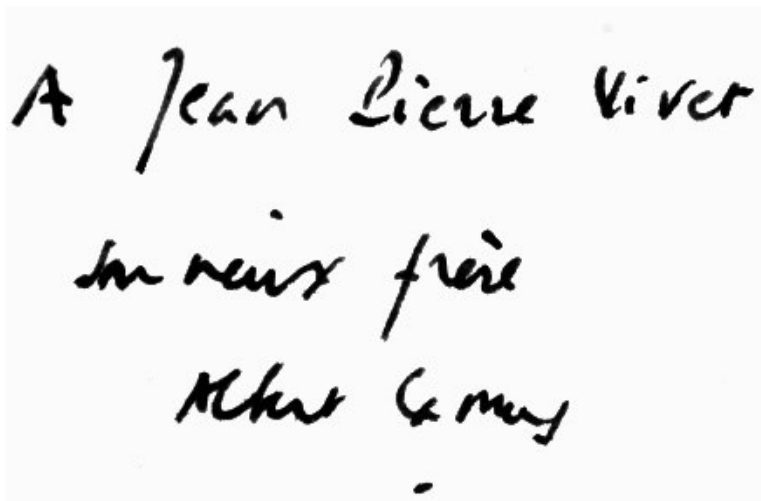 A Jean Pierre Vivet
son vieux frère
Albert Camus